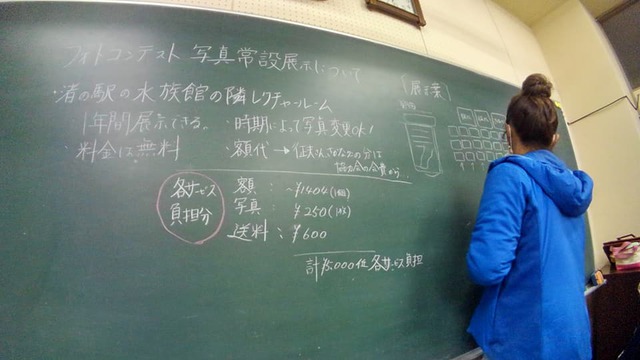 フォトコンテスト 写真常設展示について
・渚の駅の水族館の隣レクチャールーム
1年間展示できる。
・時期によって写真変更OK!
・料金は無料
・額代→
の分は
協力会の会費から
各サービス
負担分
額：~¥1404(1組)
写真：¥250(1枚)
送料：¥600
計¥5000位 各サービス負担
(展示案)